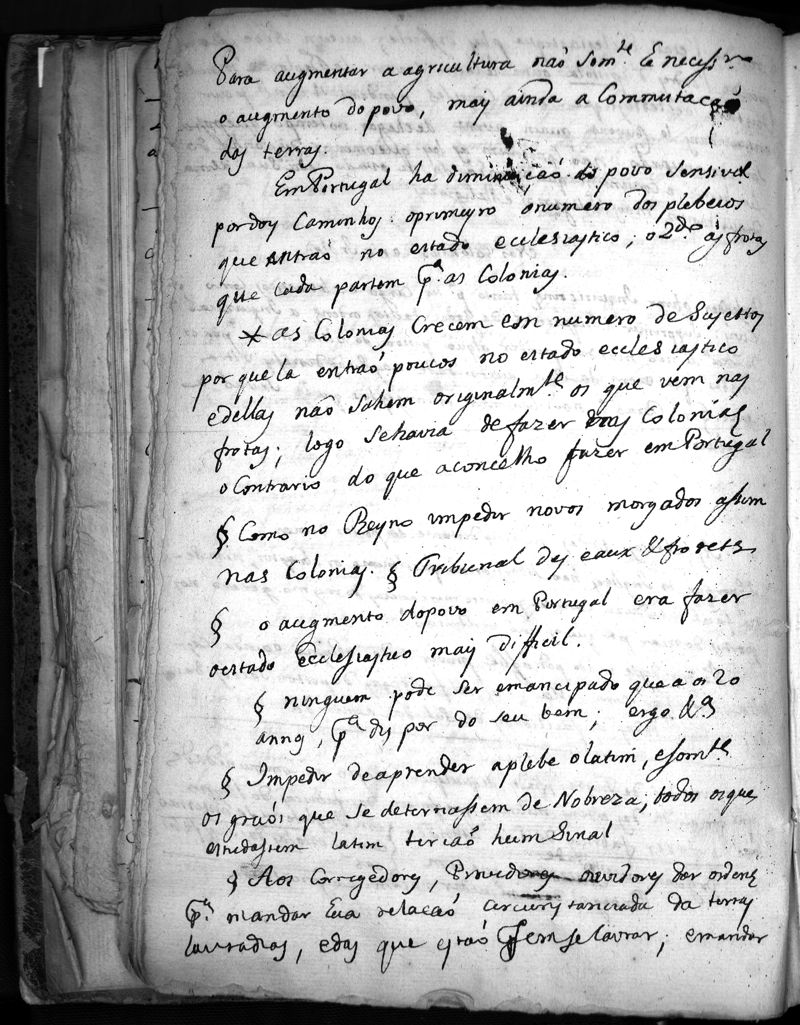 Para augmentar a agricultura naõ som.te he necessr.o
o augmento do povo, mas ainda a Commutaçaõ
das terras.
Em Portugal ha diminuiçaõ do povo sensivel
por dous Caminhos: o primeyro o numero dos plebeios
que entraõ no estado ecclesiastico; o 2.do as frotas
que cada partem p.a as Colonias.
* as Colonias Crecem em numero de Sujettos
por que la entraõ poucos no estado ecclesiastico
e dellas não sahem originalm.te os que vem nas
frotas; logo se havia de fazer nas Colonias
o Contrario do que aconcelho fazer em Portugal
§ Como no Reyno impedir novos morgados assim
nas Colonias. § Tribunal des eaux & forets
§ o augmento do povo em Portugal era fazer
o estado Ecclesiastico mais difficil.
§ ninguem pode ser emancipado que a os 20
annos, p.a dis por do seu bem; ergo &.a
§ Impedir de aprender a plebe o latim, e som.te
os graõs que se determassem de Nobreza; todos os que
estudassem latim teriaõ hum Sinal
§ Aos Corregedores, Provedores ouvidores dar ordens
p.a mandar hua relacaõ circunstanciada da terras
lavradias, e das que estaõ sem se lavrar; e mandar